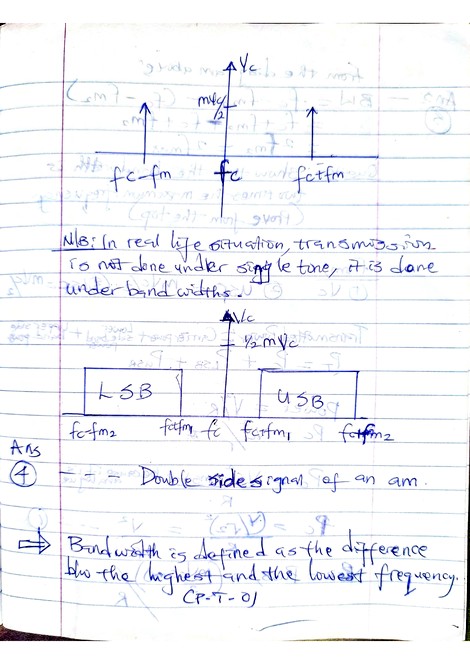 Vc
mVc/2
fc-fm fc fc+fm
N/B: In real life situation, transmission
is not done under single tone, it is done
under band widths.
Vc
1/2 mVc
LSB USB
fc-fm2 fc+fm1 fc fc+fm1 fc+fm2
Ans
4 -- Double side signal of an am.
⇒ Bandwidth is defined as the difference
b/w the highest and the lowest frequency.